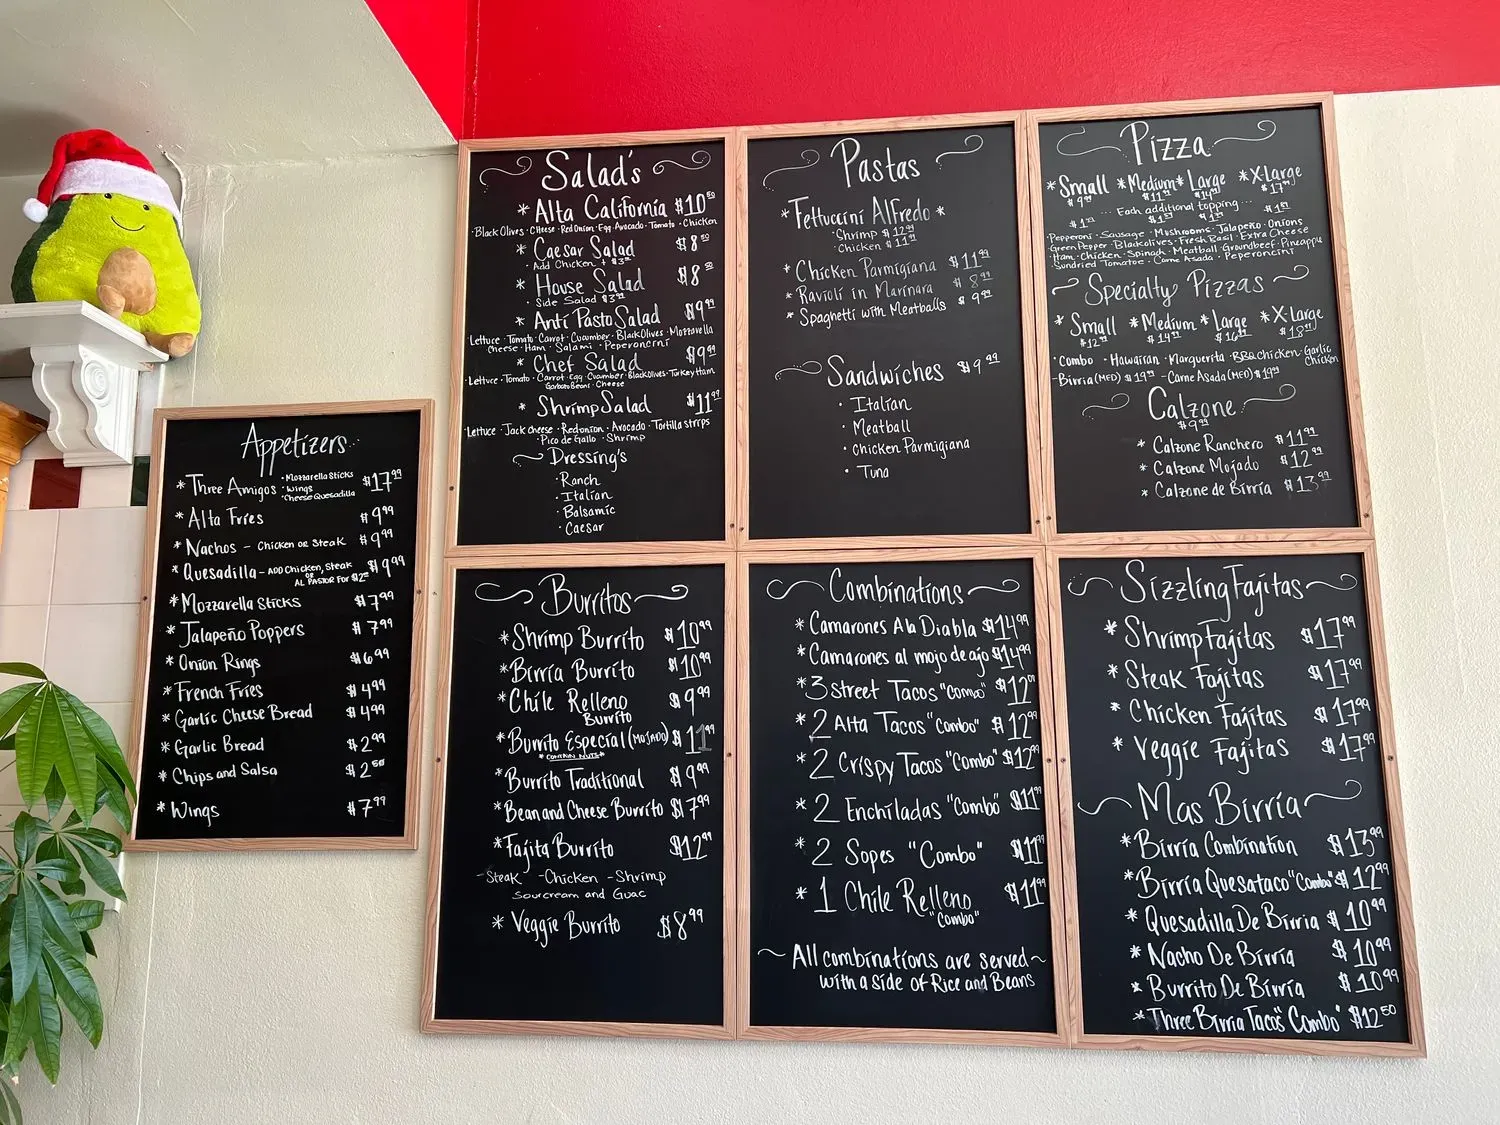 Appetizers
* Three Amigos · Mozzarella Sticks · Wings · Cheese Quesadilla $17.99
* Alta Fries $9.99
* Nachos - Chicken or Steak $9.99
* Quesadilla - ADD Chicken, Steak or AL PASTOR For $2 $9.99
* Mozzarella Sticks $7.99
* Jalapeño Poppers $7.99
* Onion Rings $6.99
* French Fries $4.99
* Garlic Cheese Bread $4.99
* Garlic Bread $2.99
* Chips and Salsa $2.50
* Wings $7.99
Salad's
* Alta California $10.50
· Black Olives · Cheese · Red Onion · Egg · Avocado · Tomato · Chicken
* Caesar Salad $8.50
· Add Chicken +
* House Salad $8
· Side Salad $3.99
* Anti Pasto Salad $9.99
Lettuce · Tomato · Carrot · Cucumber · Black Olives · Mozzarella
Cheese · Ham · Salami · Peperoncini
* Chef Salad $9.99
· Lettuce · Tomato · Carrot · Egg · Cucumber · Black Olives · Turkey Ham
Garbanzo Beans · Cheese
* Shrimp Salad $11.99
Lettuce · Jack Cheese · Red onion · Avocado · Tortilla strips
· Pico de Gallo · Shrimp
Dressing's
· Ranch
· Italian
· Balsamic
· Caesar
Pastas
* Fettuccini Alfredo *
· Shrimp $12.99
· Chicken $11.99
* Chicken Parmigiana $11.99
* Ravioli in Marinara $8.99
* Spaghetti with Meatballs $9.99
Sandwiches $9.99
· Italian
· Meatball
· Chicken Parmigiana
· Tuna
Pizza
* Small * Medium * Large * X-Large
$9.99 $11.99 $14.99 $17.99
... Each additional topping ...
· Pepperoni · Sausage · Mushrooms · Jalapeño · Onions
· Green Pepper · Black olives · Fresh Basil · Extra Cheese
· Ham · Chicken · Spinach · Meatball · Ground beef · Pineapple
· Sundried Tomatoe · Carne Asada · Peperoncini
Specialty Pizzas
* Small * Medium * Large * X-Large
$12.99 $14.99 $16.99 $18.99
· Combo · Hawaiian · Marguerita · BBQ Chicken · Garlic Chicken
- Birria (MED) $19.99 - Carne Asada (MED) $19.99
Calzone
$9.99
* Calzone Ranchero $11.99
* Calzone Mojado $12.99
* Calzone de Birria $13.99
Burritos
* Shrimp Burrito $10.99
* Birria Burrito $10.99
* Chile Relleno Burrito $9.99
* Burrito Especial (MOJADO) $11.99
* CONTAIN NUTS *
* Burrito Traditional $9.99
* Bean and Cheese Burrito $7.99
* Fajita Burrito $12.99
- Steak - Chicken - Shrimp
Sourcream and Guac
* Veggie Burrito $8.99
Combinations
* Camarones A la Diabla $14.99
* Camarones al mojo de ajo $14.99
* 3 Street Tacos "Combo" $12.99
* 2 Alta Tacos "Combo" $12.99
* 2 Crispy Tacos "Combo" $12.99
* 2 Enchiladas "Combo" $11.99
* 2 Sopes "Combo" $11.99
* 1 Chile Relleno "Combo" $11.99
~ All combinations are served ~
with a side of Rice and Beans
Sizzling Fajitas
* Shrimp Fajitas $17.99
* Steak Fajitas $17.99
* Chicken Fajitas $17.99
* Veggie Fajitas $17.99
Mas Birria
* Birria Combination $13.99
* Birria Quesataco "Combo" $12.99
* Quesadilla De Birria $10.99
* Nacho De Birria $10.99
* Burrito De Birria $10.99
* Three Birria Tacos "Combo" $12.50